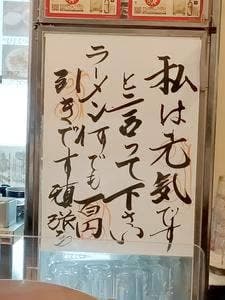 私は元気です
と言って下さい
ラーメン何でも百円
引きです頑張ろう